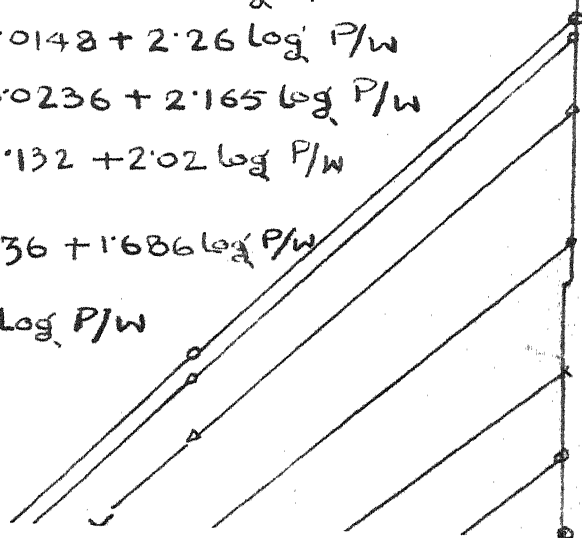 .0148 + 2.26 log P/W
.0236 + 2.165 log P/W
.132 + 2.02 log P/W
36 + 1.686 log P/W
Log P/W